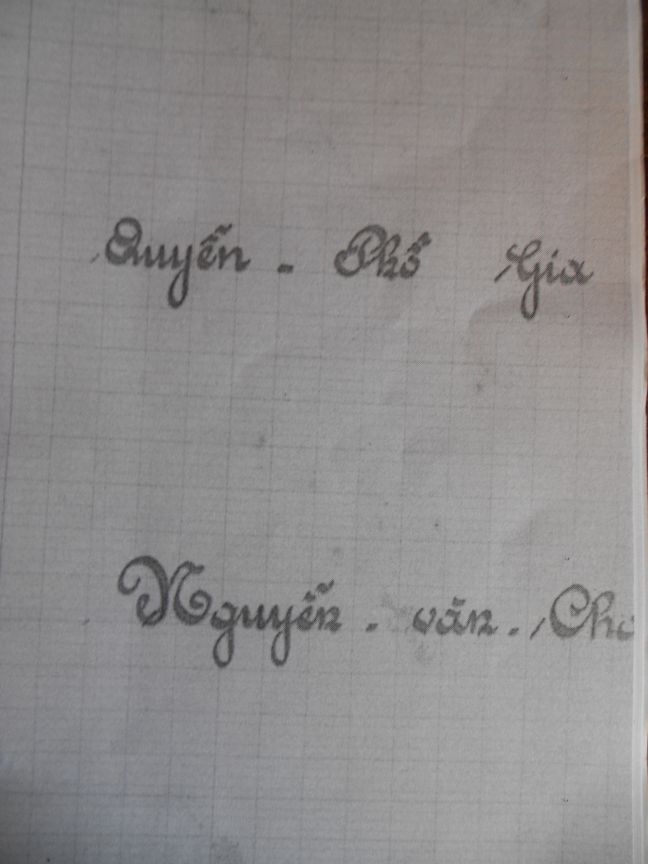 Quyển - Phổ Gia
Nguyễn - văn -